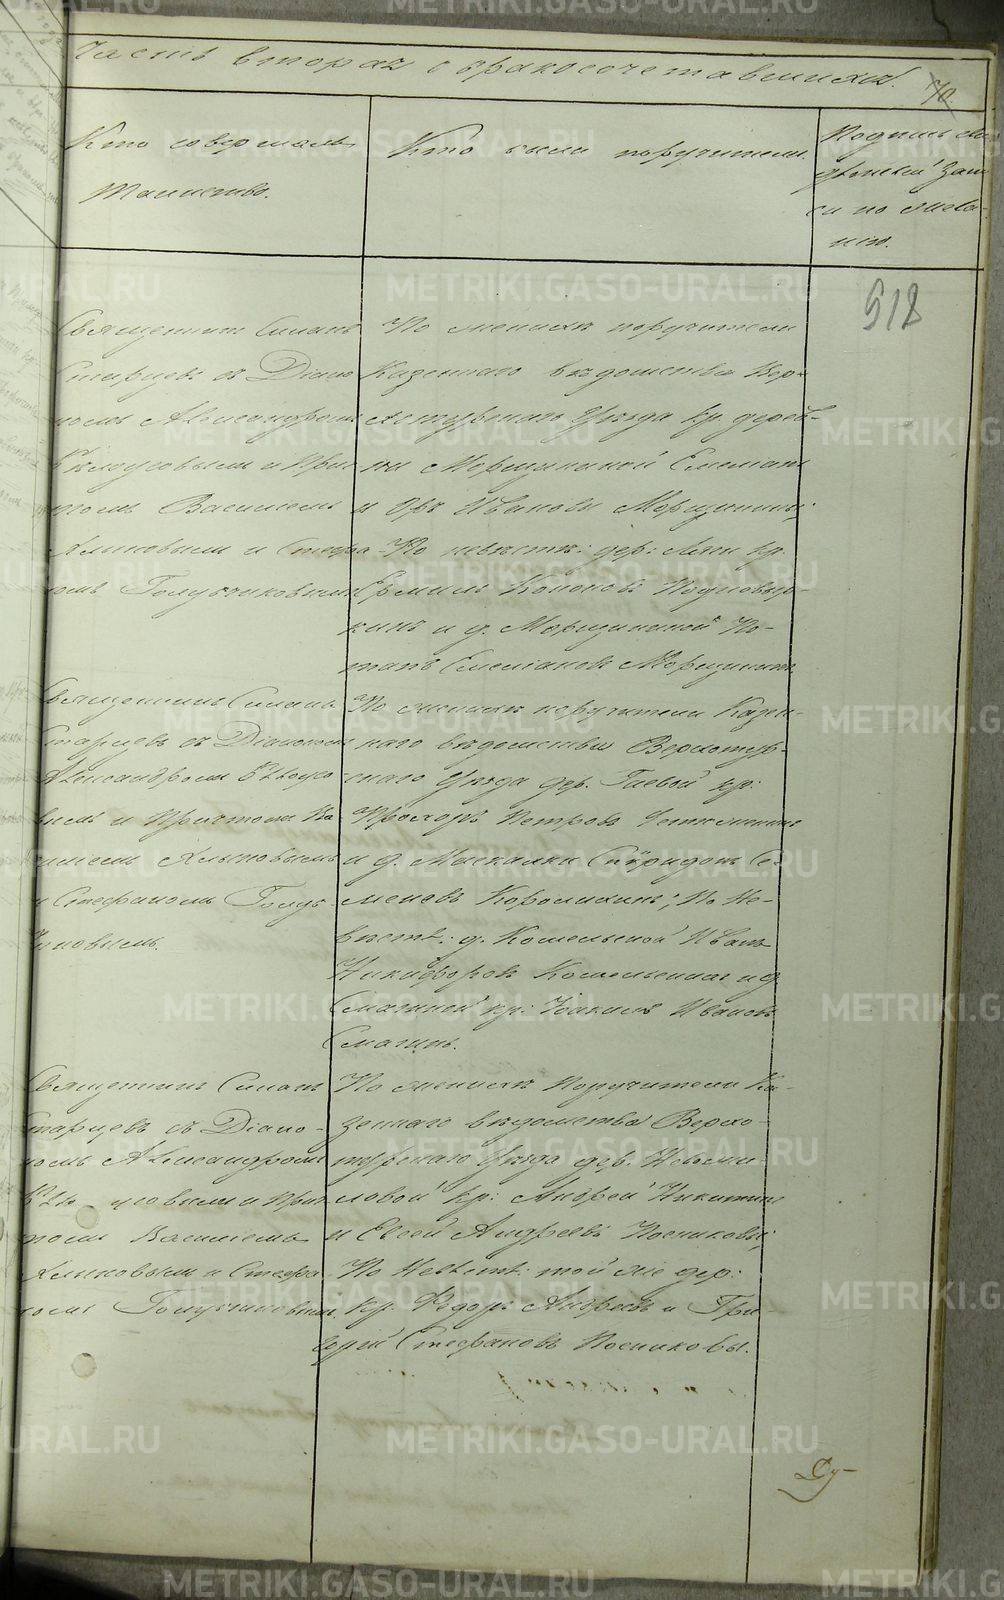 Часть вторая о бракосочетавшихся.
70.
Кто совершалъ
Таинство.
Кто были поручители
Подпись сви-
дѣтелей Запи
си по жела-
нію.
518
Священникъ Симонъ
Старцевъ съ Діако
номъ Александромъ
Бѣлоусовымъ и Прич
томъ Василіемъ
Хлыновымъ и Стефа
номъ Голубчиковымъ
По женихѣ поручители
Казеннаго вѣдомства Вер-
хотурскаго Уѣзда кр. дерев-
ни Морщининой Емельянъ
и Ѳръ Ивановы Морщинины;
По невѣстѣ: дер: Ляги кр.
Ермилъ Кононовъ Подновыр-
кинъ и д. Морщининой По-
тапъ Емельяновъ Морщининъ
Священникъ Симонъ
Старцевъ съ Діакономъ
Александромъ Бѣлоусо
вымъ и Причтомъ Ва
силіемъ Хлыновымъ
и Стефаномъ Голуб-
чиковымъ.
По женихѣ поручители Казен-
наго вѣдомства Верхотур-
скаго Уѣзда дер. Гаевой кр:
Прохоръ Петровъ
и д. Маскалки Спѵридонъ Се-
меновъ Королихинъ; По Не-
вѣстѣ: д. Кошельской Иванъ
Никифоровъ и д.
Смагиной кр: Іоакимъ Ивановъ
Смагинъ.
Священникъ Симонъ
Старцевъ съ Діако-
номъ Александромъ
Бѣлоусовымъ и Прич
томъ Василіемъ
Хлыновымъ и Стефа
номъ Голубчиковымъ.
По женихѣ Поручители Ка-
зеннаго вѣдомства Верхо-
турскаго Уѣзда дер.
кр: Андрей Никитинъ
и Евсей Андреевъ Посниковы;
По Невѣстѣ: той же дер:
кр. Ѳедоръ Андреевъ и Гри-
горій Стефановъ Посниковы.
METRIKI.GASO-URAL.RU